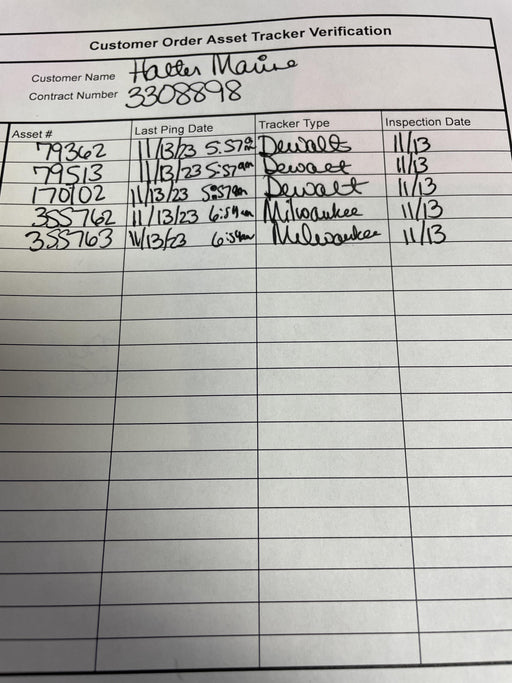 Customer Order Asset Tracker Verification
Customer Name Halter Marine
Contract Number 3308898
Asset # Last Ping Date Tracker Type Inspection Date
79362 11/13/23 5:57am Dewalt 11/13
79513 11/13/23 5:57am Dewalt 11/13
170102 11/13/23 5:57am Dewalt 11/13
355762 11/13/23 6:54am Milwaukee 11/13
355763 11/13/23 6:54am Milwaukee 11/13